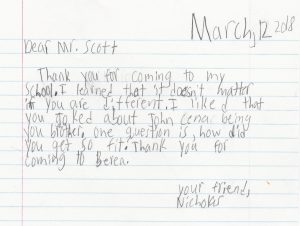 March,12 2018
Dear Mr. Scott
Thank you for coming to my
School. I learned that it doesn't matter
if you are different. I liked that
you joked about John cena being
you brother. one question is, how did
you get so fit. Thank you for
coming to Berea.
your friend,
Nicholas